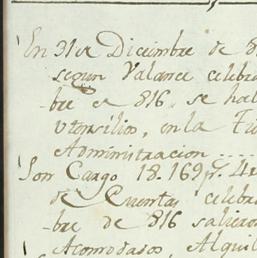 En 31 de Diciembre de 8
segun Valance celebra
bre de 816 se hal
Utensilios, en la Fu
Administracion ....
Son Cargo 18.169 pr. 4
de Cuenta, celebra
bre de 816 salieron
Acomodados, Alquil